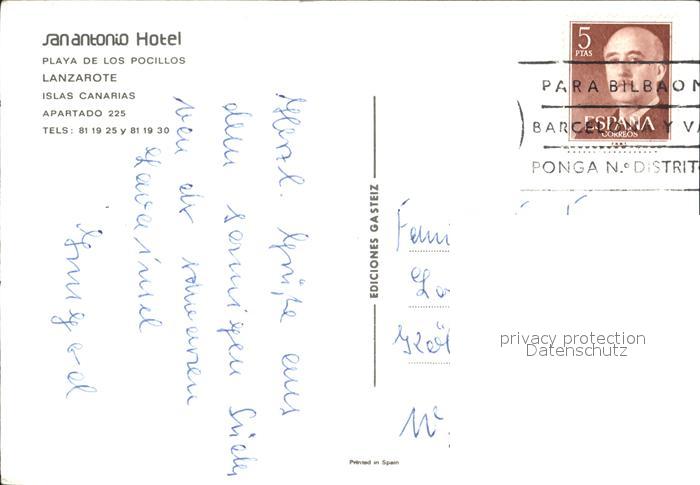 san antonio Hotel
PLAYA DE LOS POCILLOS
LANZAROTE
ISLAS CANARIAS
APARTADO 225
TELS: 81 19 25 y 81 19 30
Herzl. Grüße aus
dem sonnigen Süden
von der schwarzen
Lavainsel
Irmgard
EDICIONES GASTEIZ
Printed in Spain
5
PTAS
ESPAÑA
CORREOS
PARA BILBAO M
BARCELONA Y VA
PONGA N.º DISTRIT
Fami
Kö
W.
privacy protection
Datenschutz